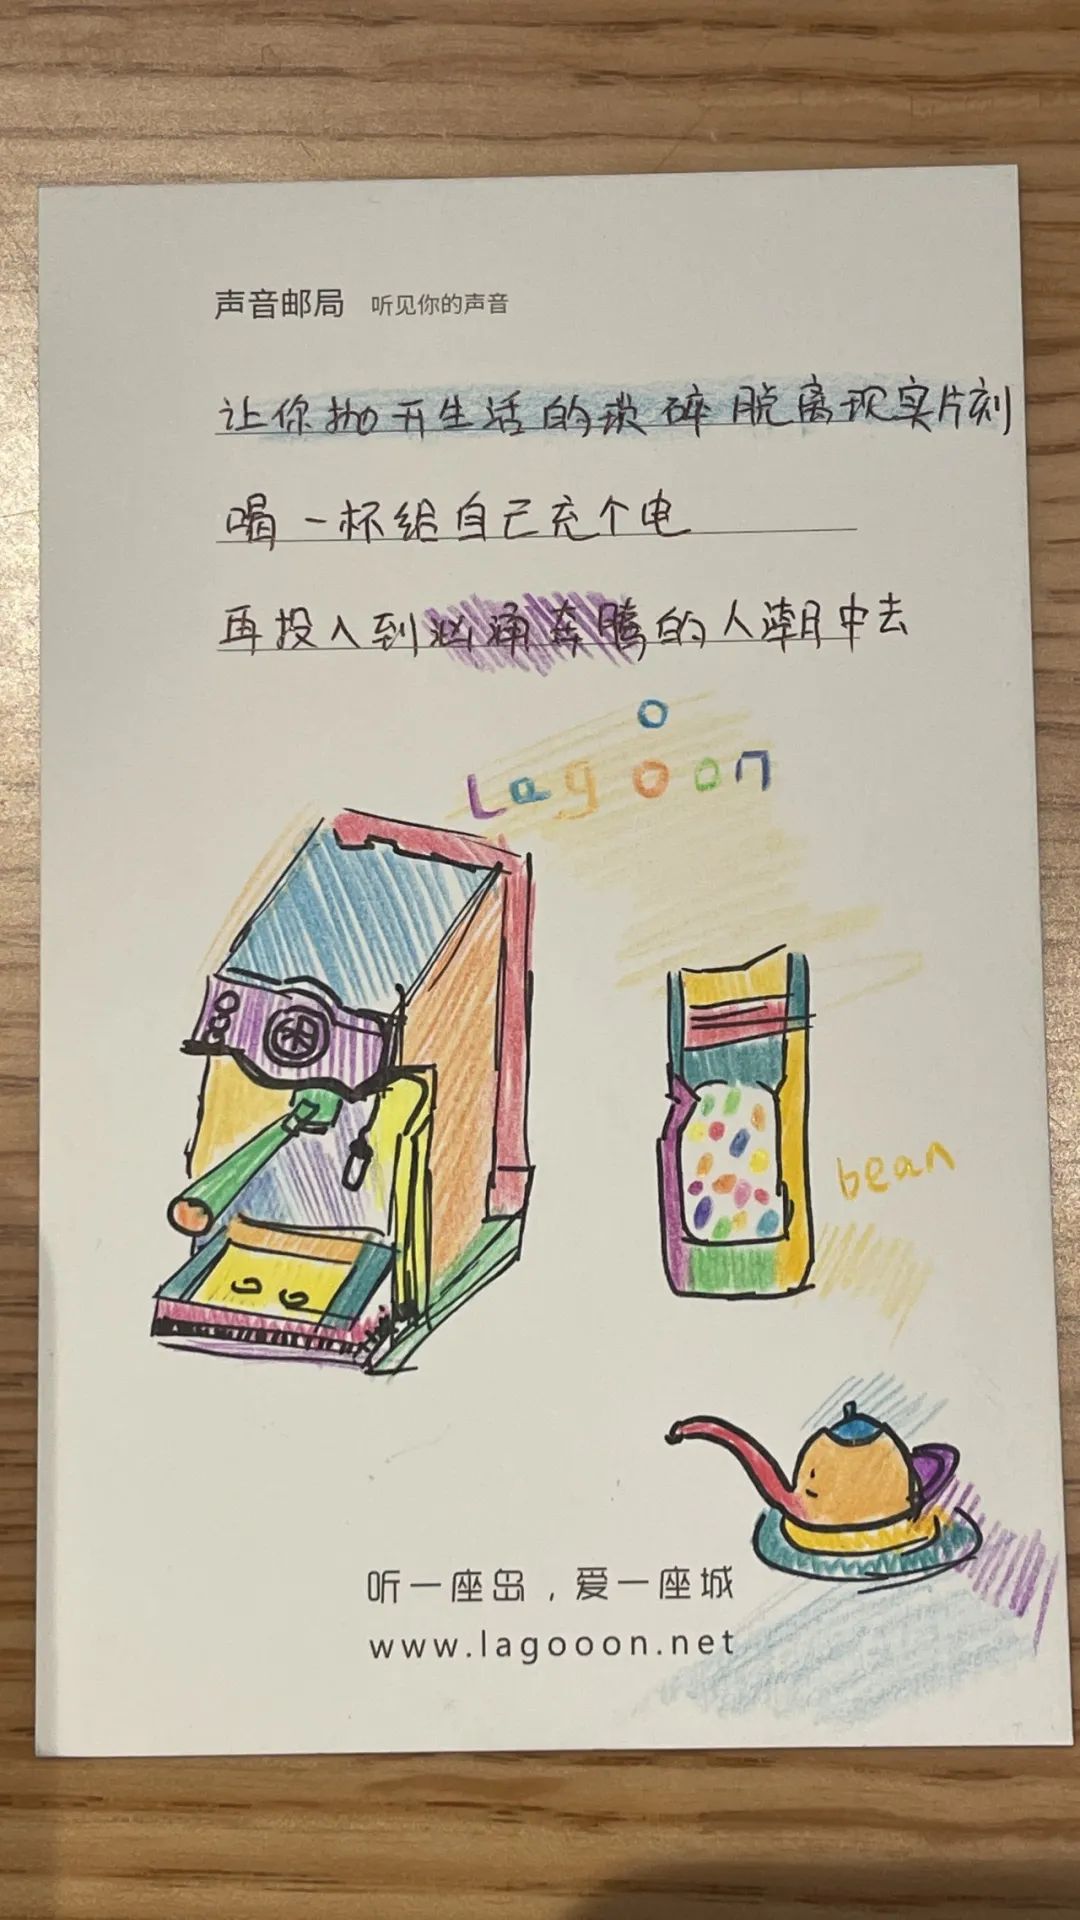 声音邮局 听见你的声音
让你抛开生活的琐碎 脱离现实片刻
喝一杯给自己充个电
再投入到汹涌奔腾的人潮中去
o
Lagoon
bean
听一座岛，爱一座城
www.lagooon.net